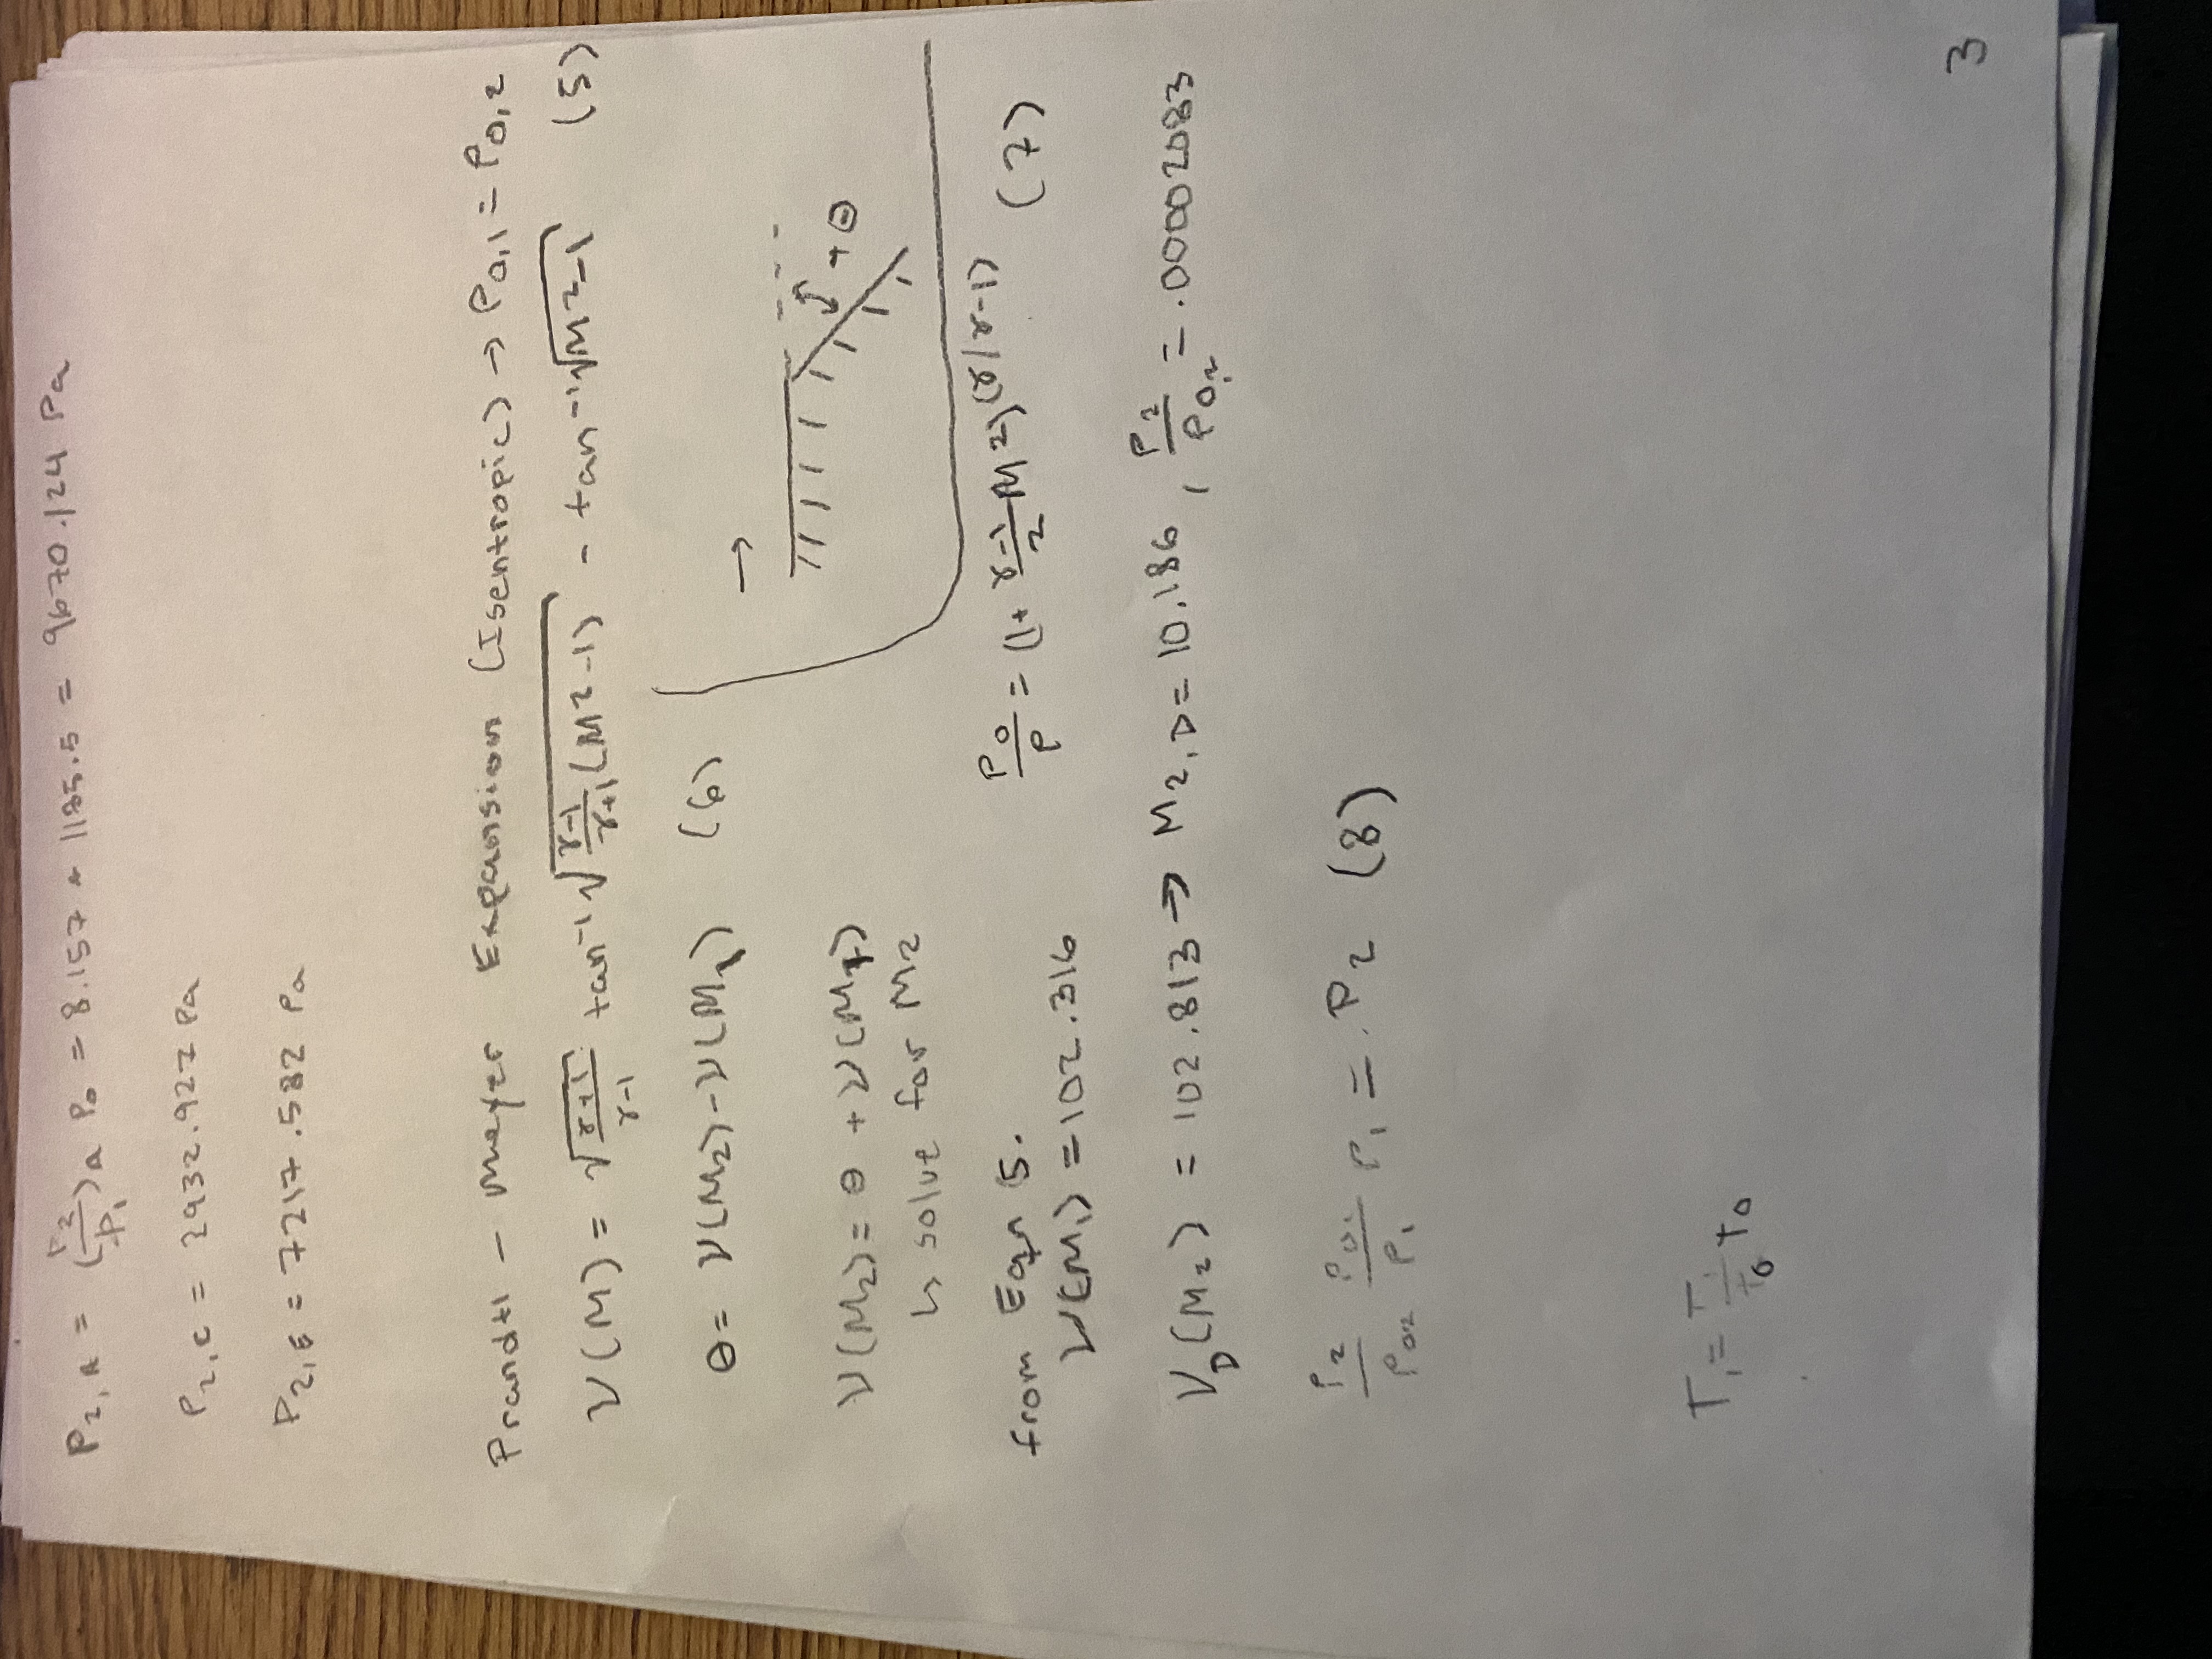 P₂,A = (P₂/P₁)A P₀ = 8.157 * 1185.5 = 9670.124 Pa
P₂,C = 2932.927 Pa
P₂,E = 7217.582 Pa
Prandtl - Meyer Expansion (Isentropic) → P₀,₁ = P₀,₂
ν(M) = √(γ+1/γ-1) tan⁻¹ √(γ-1/γ+1 (M²-1)) - tan⁻¹√(M²-1) (5)
θ = ν(M₂) - ν(M₁) (6)
→
+θ
ν(M₂) = θ + ν(M₁)
↳ solve for M₂
from Eqn 5.
P₀/P = (1+ γ-1/2 M²)^(γ/γ-1) (7)
ν(M₁) = 102.316
ν_D(M₂) = 102.813 → M₂,D = 10.186 , P₂/P₀,₂ = .00002083
P₂/P₀₂ P₀₁/P₁ P₁ = P₂ (8)
T₁ = T₁/T₀ T₀
3